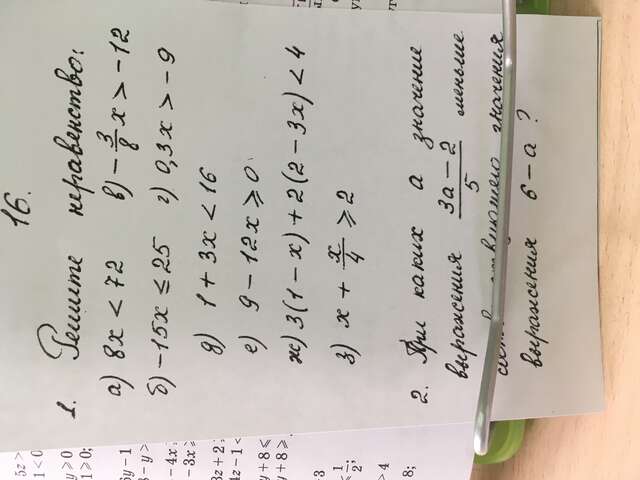 16.
1. Решите неравенство:
а) 8x < 72 в) -3/8 x > -12
б) -15x ≤ 25 г) 0,3x > -9
д) 1 + 3x < 16
е) 9 - 12x ≥ 0
ж) 3(1 - x) + 2(2 - 3x) < 4
з) x + x/4 ≥ 2
2. При каких а значение
выражения (3a - 2)/5 меньше
значения
выражения 6 - a ?
5z >
1 < 0
y ≥ 0
1 ≥ 0;
6y - 1
3 - y >
- 4x
- 3x ≥
3z + 2
4z - 1 <
y + 8 ≤
y + 8 ≥
-3
≤ 1/2;
> 4
8;